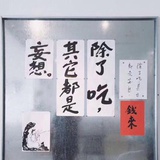 除了吃，
其它都是
妄想。
钱来